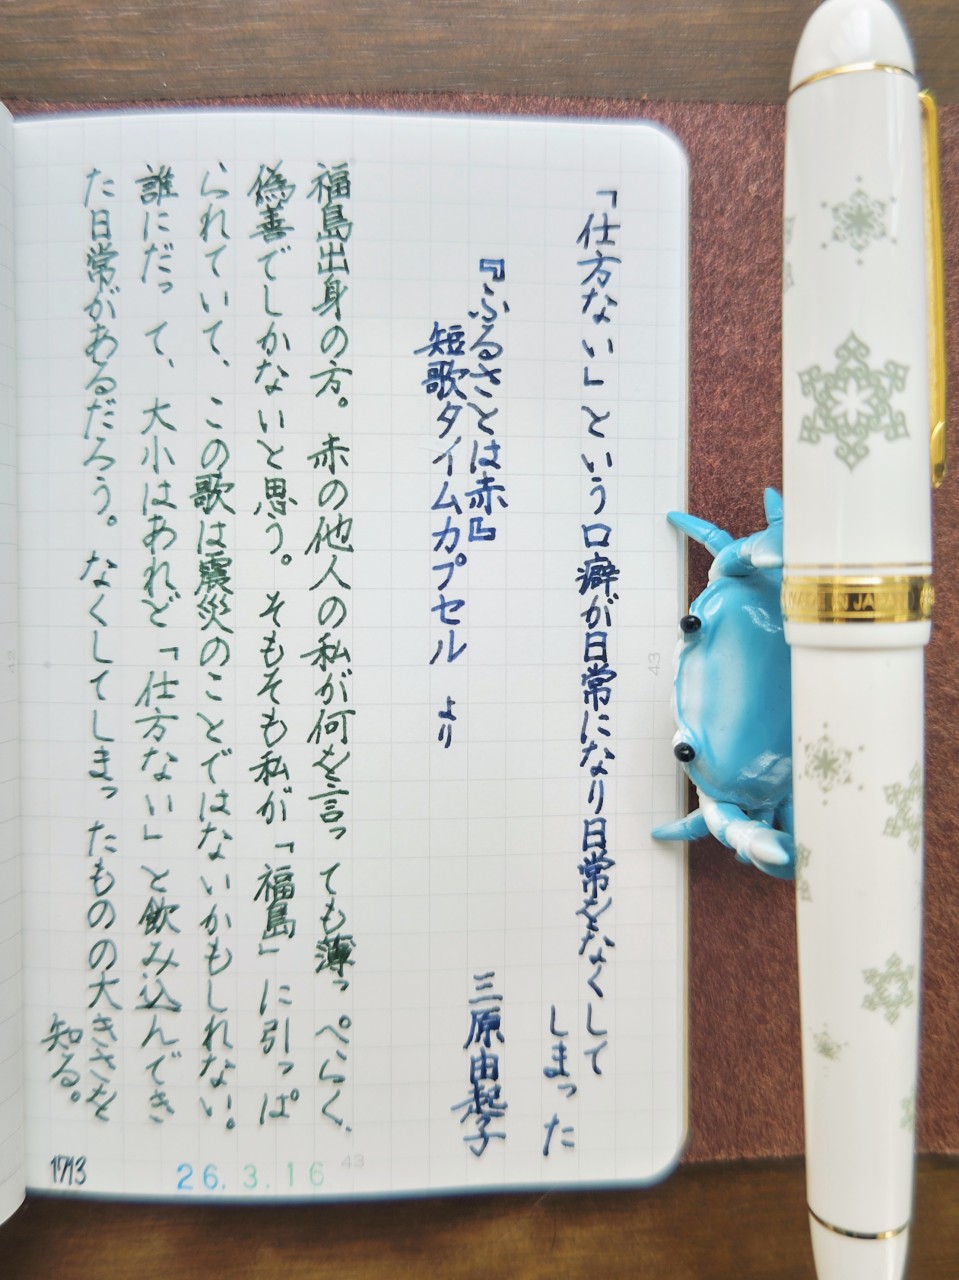 「仕方ない」という口癖が日常になり日常をなくして
しまった
三原由起子
『ふるさとは赤』
短歌タイムカプセル より
福島出身の方。赤の他人の私が何を言っても薄っぺらく、
偽善でしかないと思う。そもそも私が「福島」に引っぱ
られていて、この歌は震災のことではないかもしれない。
誰にだって、大小はあれど「仕方ない」と飲み込んでき
た日常があるだろう。なくしてしまったものの大きさを
知る。
1713
26.3.16
43
43
MADE IN JAPAN